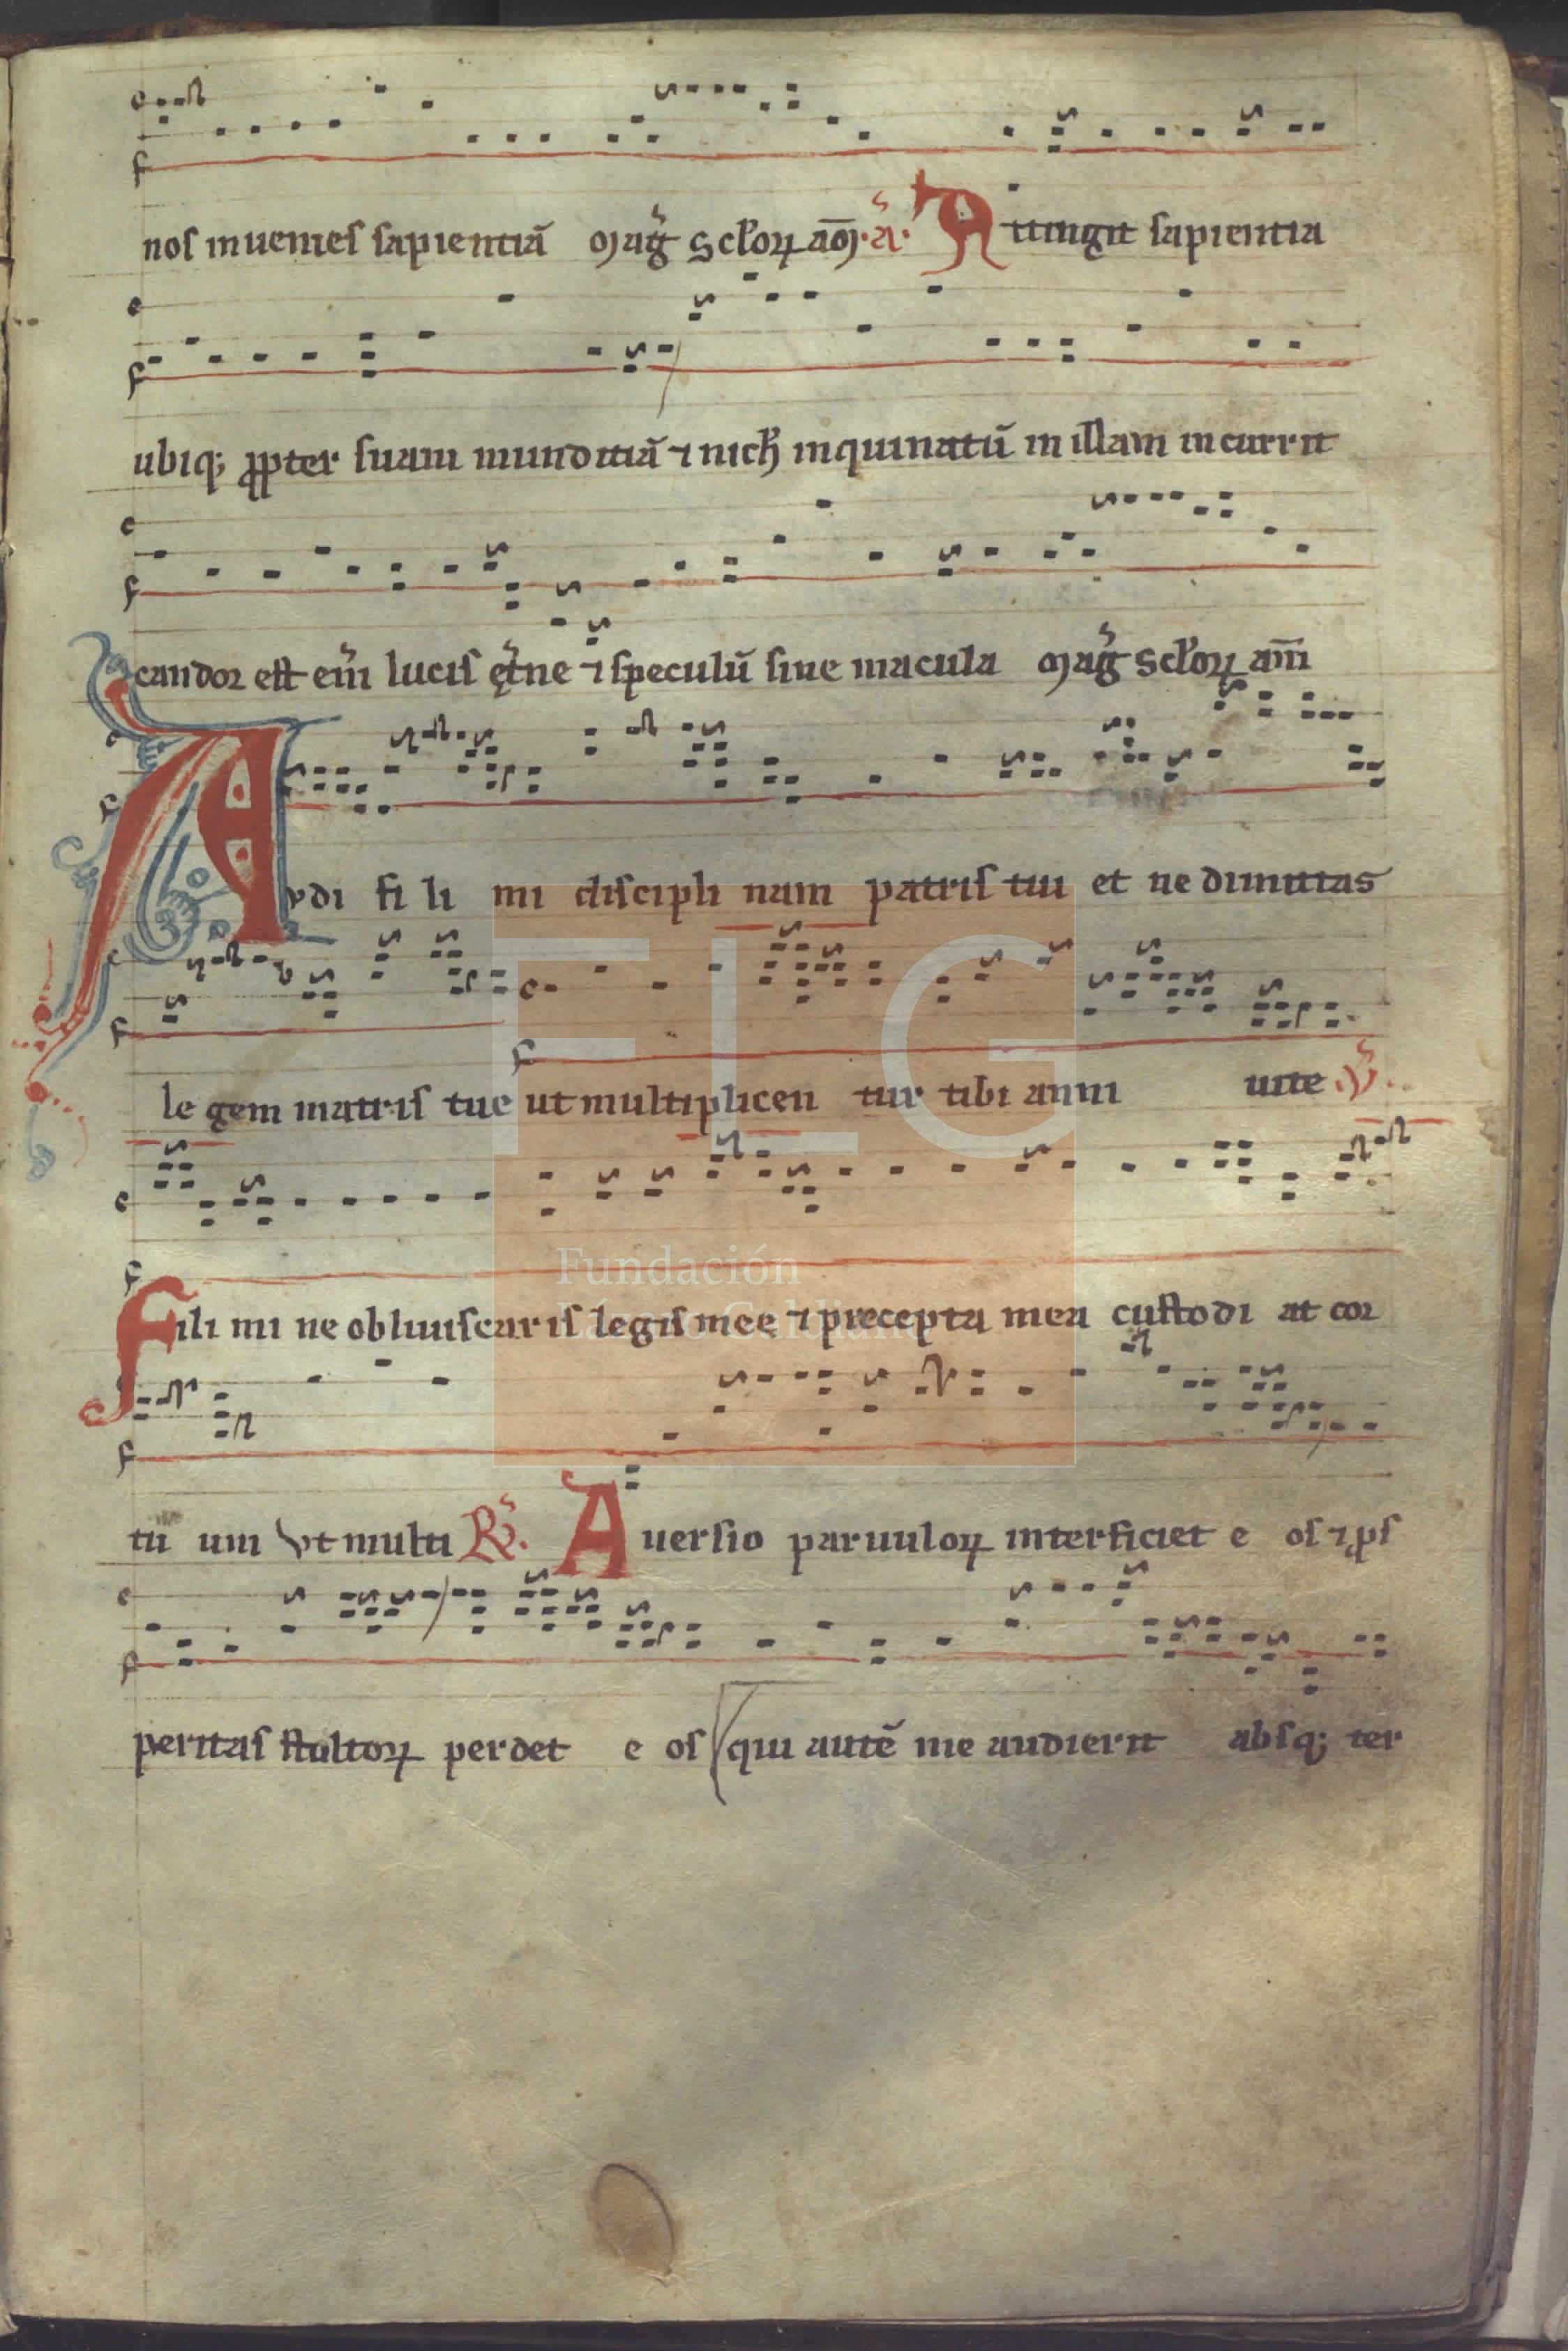 nos inuenies sapientiā magͥ sclꝛoꝝ am̄. a. Attingit sapientia
ubiq; ꝓpter suam munditiā ⁊ nich̄ inquinatū in illam incurrit
candor est eni᷒ lucis ęt̾ne ⁊ speculū sine macula mag̾ scl'oꝝ am̄
Avdi fi li mi discipli nam patris tui et ne dimittas
le gem matris tue ut multiplicen tur tibi anni uite ℣.
Fili mi ne obliuiscaris legis mee ⁊ precepta mea custodi at cor
tu um Vt multi ℟. Auersio paruuloꝝ interficiet e os ⁊ ꝓs
peritas stultoꝝ perdet e os qui autē me audierit absq; ter
FLG
Fundación
Lázaro Galdiano